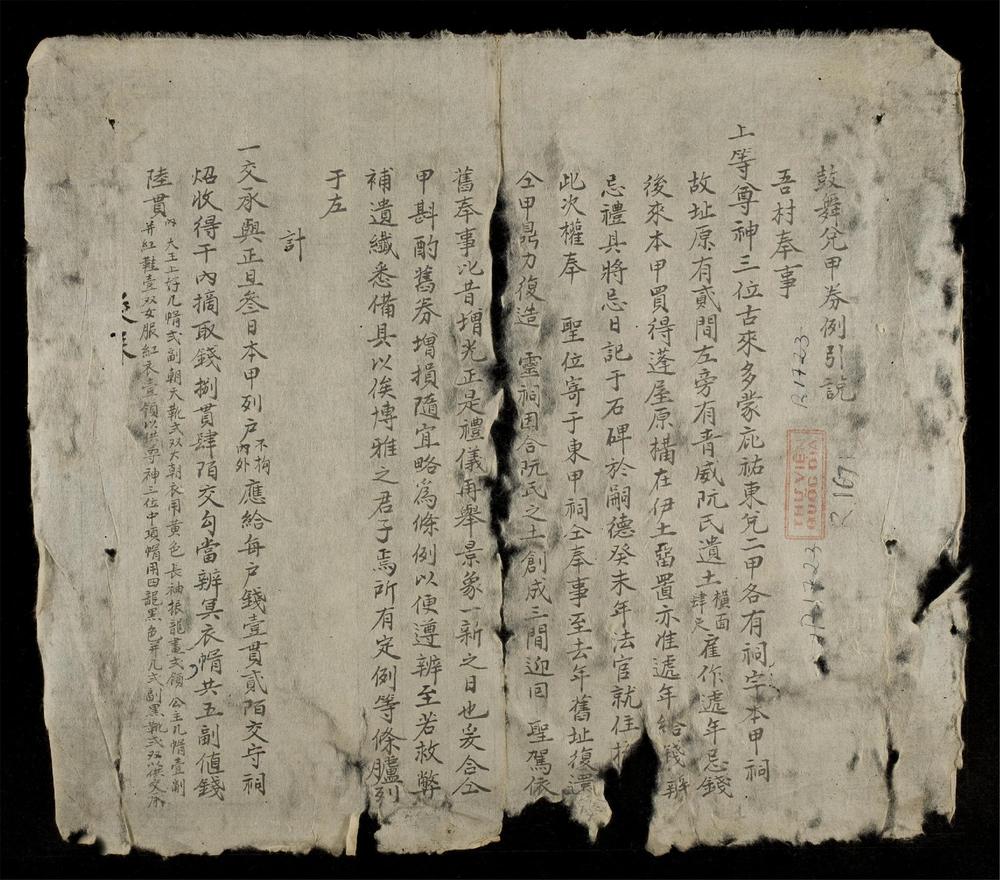 鼓舞兌甲券例引說
吾村奉事
上等尊神三位古來多蒙庇祐東兌二甲各有祠宇本甲祠
故址原有貳間左旁有青威阮氏遺土橫面肆尺雇作遞年忌錢
後來本甲買得蓬屋原構在伊土畱置亦准遞年給錢辦
忌禮具將忌日記于石碑於嗣德癸未年法官就住
此次權奉 聖位寄于東甲祠仝奉事至去年舊址復還
仝甲鼎力復造 靈祠因合阮氏之土創成三間迎回 聖駕依
舊奉事比昔增光正是禮儀再舉景象一新之日也爰合仝
甲斟酌舊券增損隨宜略為條例以便遵辨至若救弊
補遺纖悉備具以俟博雅之君子焉所有定例等條臚列
于左
計
一交承與正旦叁日本甲列戶不拘內外應給每戶錢壹貫貳陌交守祠
炤收得干內摘取錢捌貫肆陌交勾當辦冥衣帽共五副值錢
陸貫內大王上好几帽弍副朝天靴弍双大朝衣用黃色長袖振龍畫弍領公主几帽壹副
并紅鞋壹双女服紅衣壹領以供尊神三位中項帽用四龍黑色并几弍副黑靴弍双以供交承
R.1723
R 167
THƯ VIỆN
QUỐC GIA
R.1723